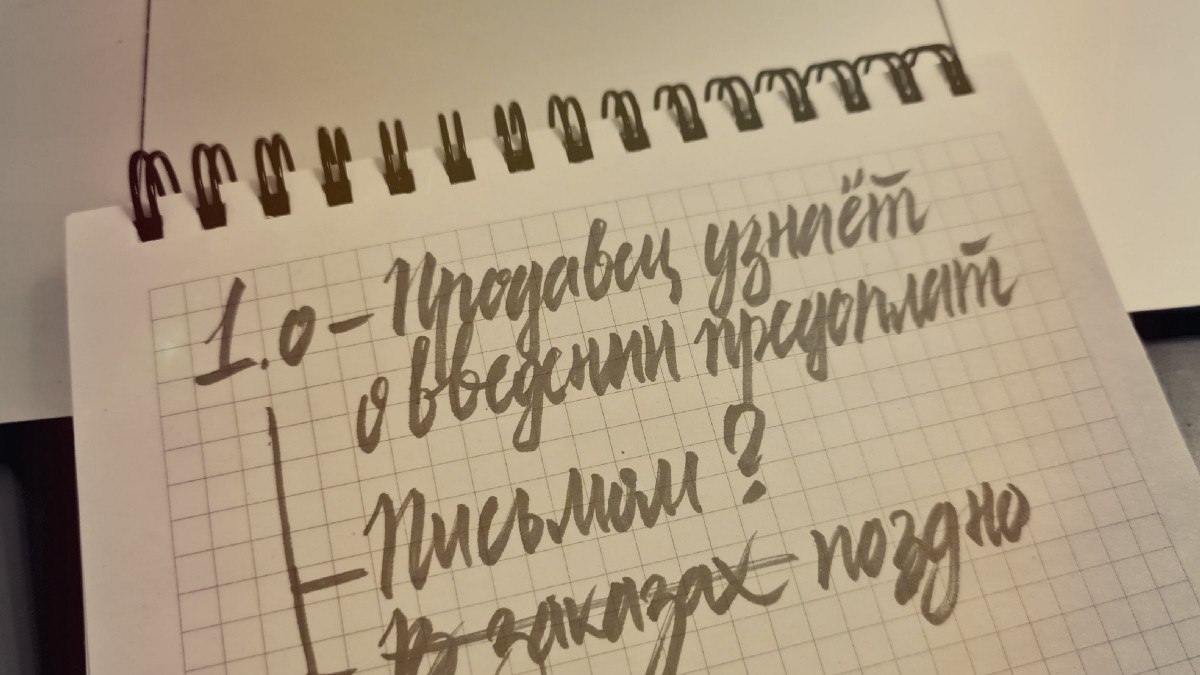 1.0 – Продавец узнаёт
о введении предоплат
Письмом?
в заказах поздно